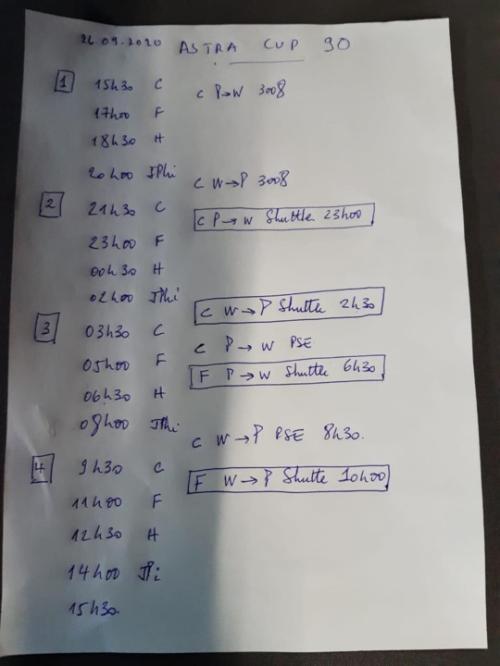 26.09.2020 ASTRA CUP 90
1 15h30 C
C P→W 3008
17h00 F
18h30 H
20h00 JPhi
C W→P 3008
2 21h30 C
C P→W Shuttle 23h00
23h00 F
00h30 H
02h00 JPhi
C W→P Shuttle 2h30
3 03h30 C
C P→W PSE
05h00 F
F P→W Shuttle 6h30
06h30 H
08h00 JPhi
C W→P PSE 8h30.
4 9h30 C
F W→P Shuttle 10h00
11h00 F
12h30 H
14h00 JPi
15h30.